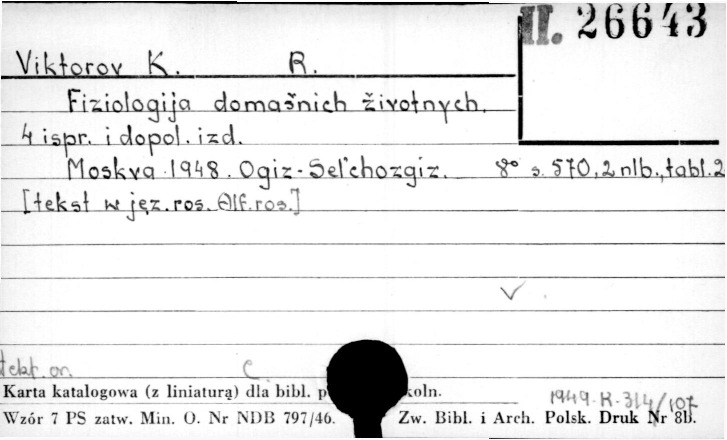 II. 26643
Viktorov K. R.
Fiziologija domašnich životnych.
4 ispr. i dopol. izd.
Moskva 1948. Ogiz-Sel'chozgiz. 8° s. 570, 2 nlb., tabl. 2
[tekst w jęz. ros. Alf. ros.]
C.
Karta katalogowa (z liniaturą) dla bibl. koln.
1949. R. 314/107
Wzór 7 PS zatw. Min. O. Nr NDB 797/46. Zw. Bibl. i Arch. Polsk. Druk Nr 8b.